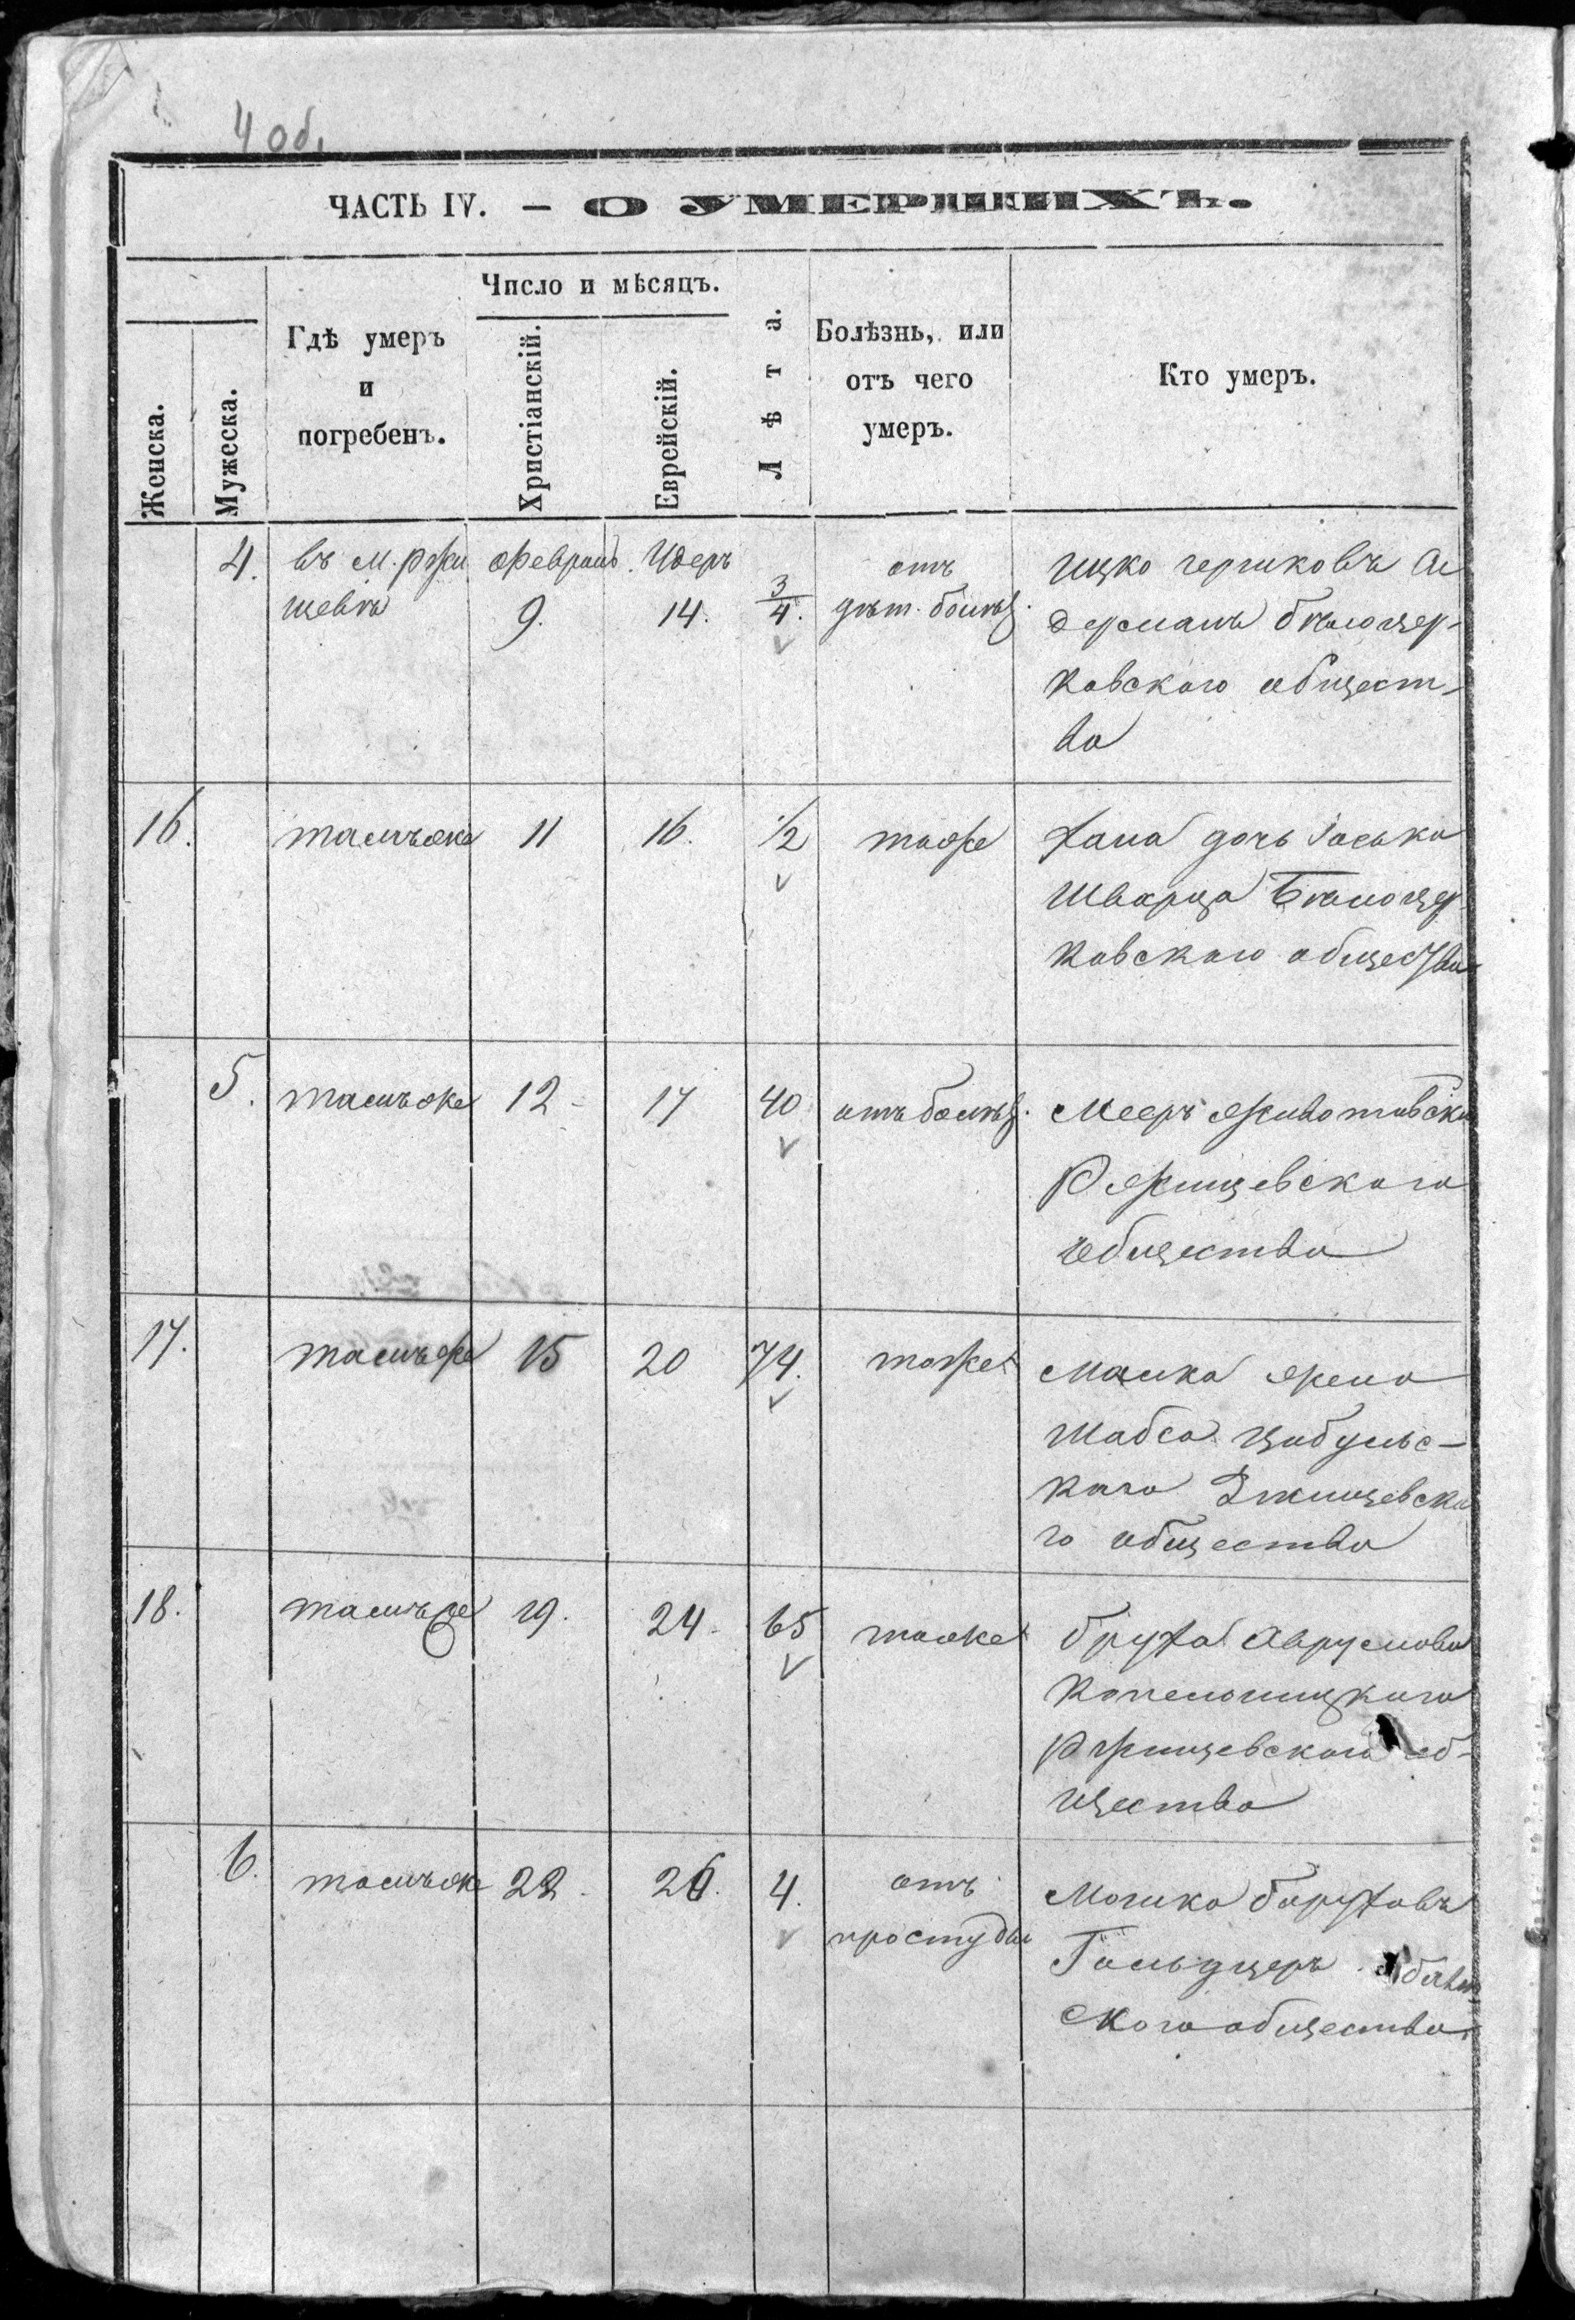 4 об.
ЧАСТЬ IV. — О УМЕРШИХЪ.
Женска.
Мужеска.
Гдѣ умеръ
и
погребенъ.
Число и мѣсяцъ.
Христіанскій.
Еврейскій.
Лѣта.
Болѣзнь, или
отъ чего
умеръ.
Кто умеръ.
4. въ м. Ржи Февраль. Идеръ 3/4. отъ Ицко
щевѣ 9. 14. дѣт. болѣз. Бѣлоцер-
ковского общест-
ва
16. тамъже 11 16. 1/2 тоже Хана дочь Іоська
Шварца Бѣлоцер
ковского общества
5. тамъже 12 - 17 40 отъ болѣз. Мееръ Животовски
Ржищевского
общества
17. тамъже 15 20 74. тоже Малка жена
Шабса Цибульс-
каго Ржищевска
го общества
18. тамъже 19. 24 - 65 тоже Бруха Аврумова
Копельницкаго
Ржищевскаго об-
щества
6. тамъже 22 - 26. 4. отъ Мошко Баруховъ
простуды Гольдцеръ
ского общества.